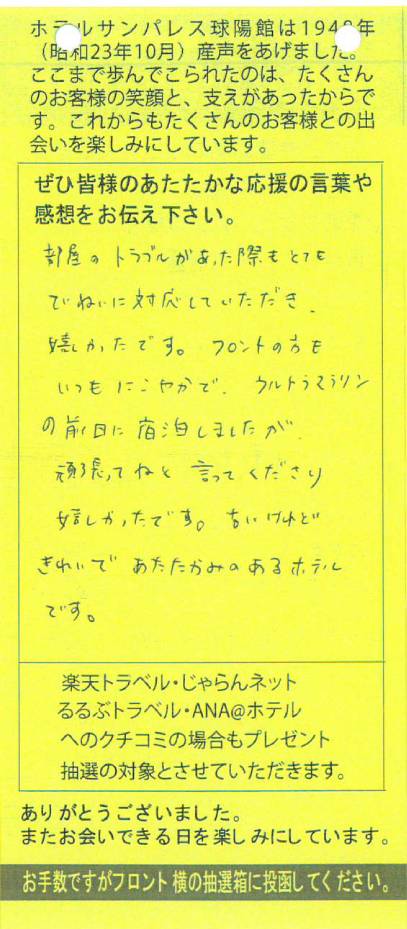 ホテルサンパレス球陽館は1948年
（昭和23年10月）産声をあげました。
ここまで歩んでこられたのは、たくさん
のお客様の笑顔と、支えがあったからで
す。これからもたくさんのお客様との出
会いを楽しみにしています。
ぜひ皆様のあたたかな応援の言葉や
感想をお伝え下さい。
部屋のトラブルがあった際もとても
ていねいに対応していただき、
嬉しかったです。フロントの方も
いつもにこやかで、ウルトラマラソン
の前日に宿泊しましたが、
頑張ってねと言ってくださり
嬉しかったです。古いけれど
きれいであたたかみのあるホテル
です。
楽天トラベル・じゃらんネット
るるぶトラベル・ANA@ホテル
へのクチコミの場合もプレゼント
抽選の対象とさせていただきます。
ありがとうございました。
またお会いできる日を楽しみにしています。
お手数ですがフロント横の抽選箱に投函してください。